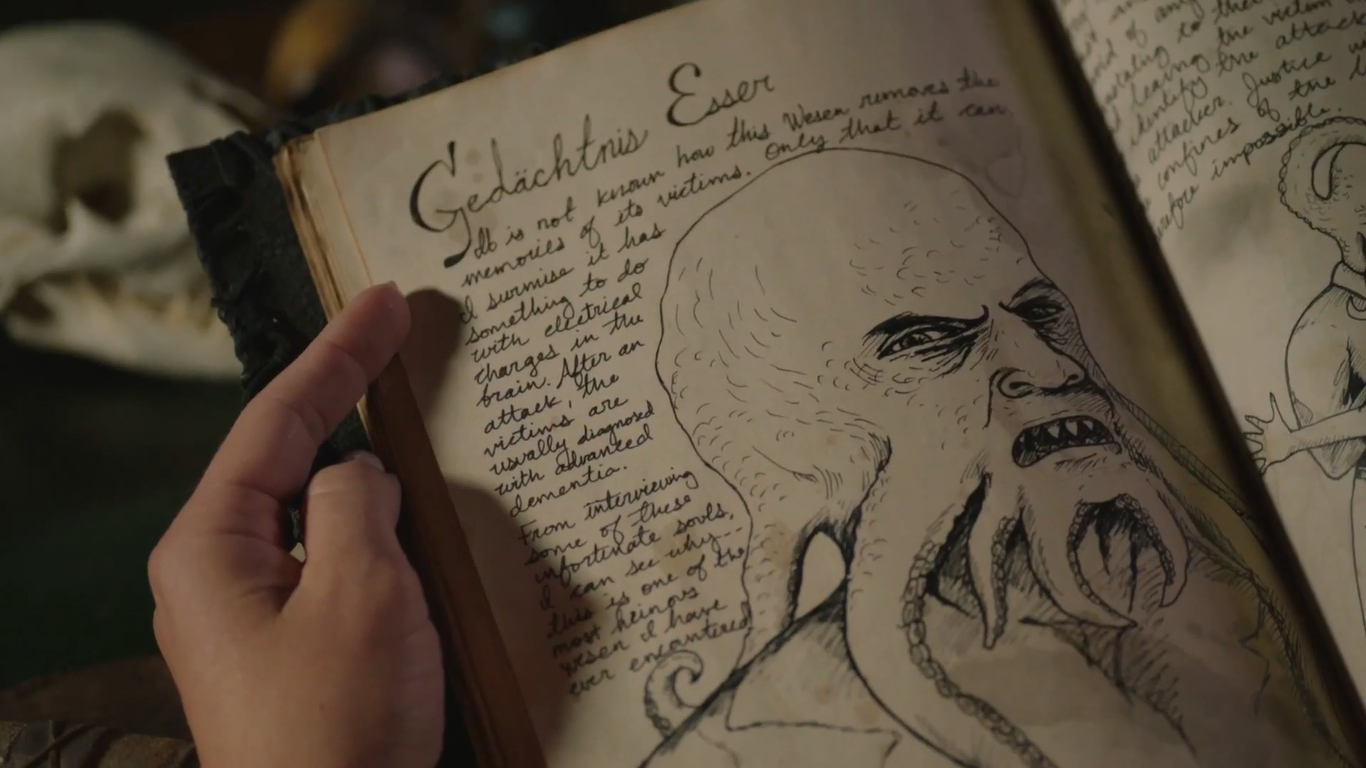 Gedächtnis Esser
It is not known how this Wesen removes the
memories of its victims. Only that it can.
I surmise it has
something to do
with electrical
charges in the
brain. After an
attack, the
victims are
usually diagnosed
with advanced
dementia.
From interviewing
some of these
infortunate souls,
I can see why--
this is one of the
most heinous
wesen I have
ever encountered
of any
to the victim
leaving the
identify the attack
attacker. Justice
confines of the
impossible.